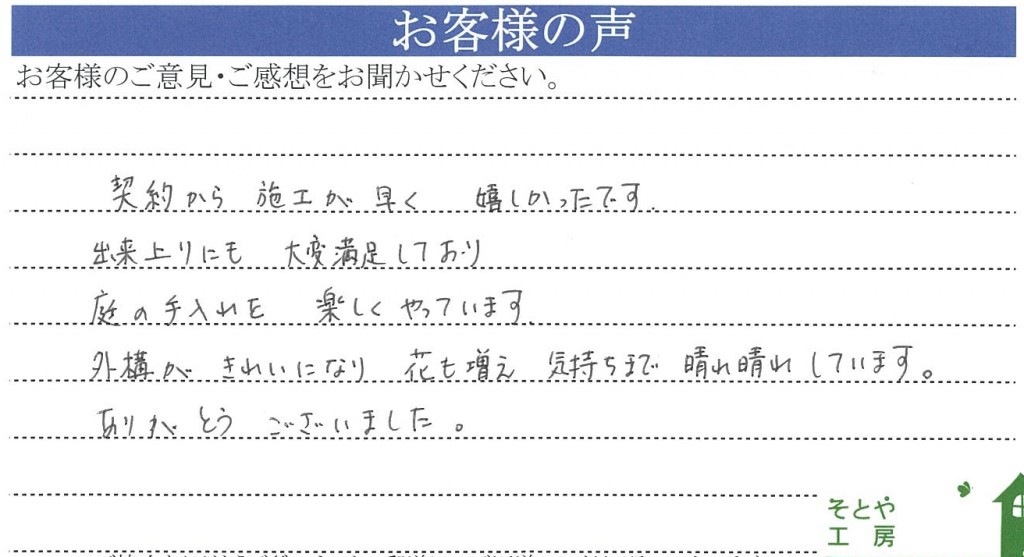 お客様の声
お客様のご意見・ご感想をお聞かせください。
契約から 施工が 早く 嬉しかったです.
出来上りにも 大変満足しており
庭の手入れを 楽しくやっています.
外構が きれいになり 花も増え 気持ちまで 晴れ晴れしています。
ありがとう ございました。
そとや
工房